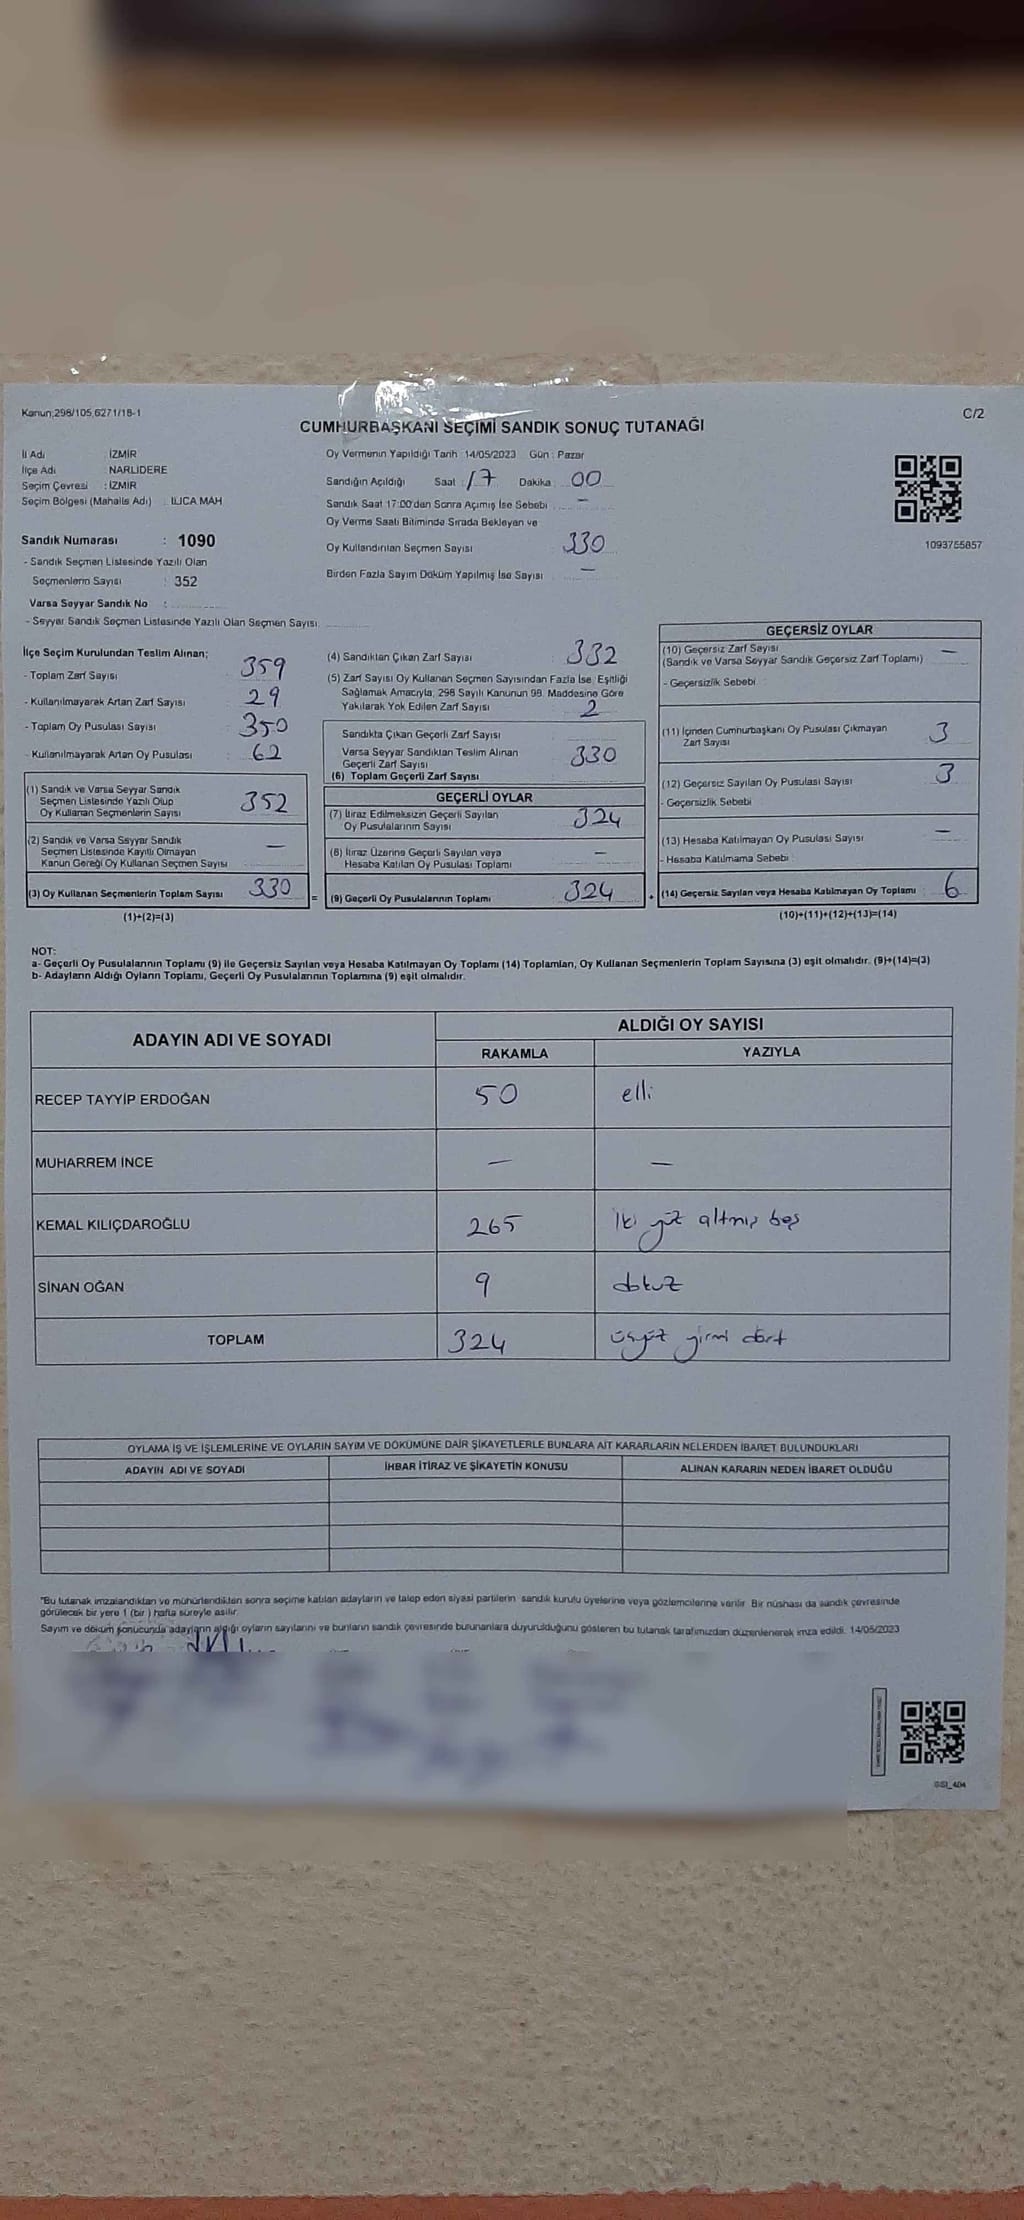 Kanun;298/105,6271/18-1
C/2
CUMHURBAŞKANI SEÇİMİ SANDIK SONUÇ TUTANAĞI
İl Adı : İZMİR
İlçe Adı : NARLIDERE
Seçim Çevresi : İZMİR
Seçim Bölgesi (Mahalle Adı) : ILICA MAH
Sandık Numarası : 1090
- Sandık Seçmen Listesinde Yazılı Olan
Seçmenlerin Sayısı : 352
Varsa Seyyar Sandık No :
- Seyyar Sandık Seçmen Listesinde Yazılı Olan Seçmen Sayısı:
Oy Vermenin Yapıldığı Tarih :14/05/2023 Gün : Pazar
Sandığın Açıldığı Saat : 17 Dakika : 00
Sandık Saat 17:00'den Sonra Açımış İse Sebebi : —
Oy Verme Saati Bitiminde Sırada Bekleyen ve
Oy Kullandırılan Seçmen Sayısı : 330
Birden Fazla Sayım Döküm Yapılmış İse Sayısı : —
1093755857
İlçe Seçim Kurulundan Teslim Alınan;
- Toplam Zarf Sayısı : 359
- Kullanılmayarak Artan Zarf Sayısı : 29
- Toplam Oy Pusulası Sayısı : 350
- Kullanılmayarak Artan Oy Pusulası : 62
(1) Sandık ve Varsa Seyyar Sandık
Seçmen Listesinde Yazılı Olup
Oy Kullanan Seçmenlerin Sayısı : 352
(2) Sandık ve Varsa Seyyar Sandık
Seçmen Listesinde Kayıtlı Olmayan
Kanun Gereği Oy Kullanan Seçmen Sayısı : —
(3) Oy Kullanan Seçmenlerin Toplam Sayısı : 330
(1)+(2)=(3)
(4) Sandıktan Çıkan Zarf Sayısı : 332
(5) Zarf Sayısı Oy Kullanan Seçmen Sayısından Fazla İse; Eşitliği
Sağlamak Amacıyla, 298 Sayılı Kanunun 98. Maddesine Göre
Yakılarak Yok Edilen Zarf Sayısı : 2
Sandıkta Çıkan Geçerli Zarf Sayısı
Varsa Seyyar Sandıktan Teslim Alınan
Geçerli Zarf Sayısı
(6) Toplam Geçerli Zarf Sayısı : 330
GEÇERLİ OYLAR
(7) İtiraz Edilmeksizin Geçerli Sayılan
Oy Pusulalarının Sayısı : 324
(8) İtiraz Üzerine Geçerli Sayılan veya
Hesaba Katılan Oy Pusulası Toplamı : —
= (9) Geçerli Oy Pusulalarının Toplamı : 324
GEÇERSİZ OYLAR
(10) Geçersiz Zarf Sayısı : —
(Sandık ve Varsa Seyyar Sandık Geçersiz Zarf Toplamı)
- Geçersizlik Sebebi :
(11) İçinden Cumhurbaşkanı Oy Pusulası Çıkmayan
Zarf Sayısı : 3
(12) Geçersiz Sayılan Oy Pusulası Sayısı : 3
- Geçersizlik Sebebi :
(13) Hesaba Katılmayan Oy Pusulası Sayısı : —
- Hesaba Katılmama Sebebi :
+ (14) Geçersiz Sayılan veya Hesaba Katılmayan Oy Toplamı : 6
(10)+(11)+(12)+(13)=(14)
NOT:
a- Geçerli Oy Pusulalarının Toplamı (9) ile Geçersiz Sayılan veya Hesaba Katılmayan Oy Toplamı (14) Toplamları, Oy Kullanan Seçmenlerin Toplam Sayısına (3) eşit olmalıdır. (9)+(14)=(3)
b- Adayların Aldığı Oyların Toplamı, Geçerli Oy Pusulalarının Toplamına (9) eşit olmalıdır.
ADAYIN ADI VE SOYADI
ALDIĞI OY SAYISI
RAKAMLA YAZIYLA
RECEP TAYYİP ERDOĞAN 50 elli
MUHARREM İNCE — —
KEMAL KILIÇDAROĞLU 265 İki yüz altmış beş
SİNAN OĞAN 9 dokuz
TOPLAM 324 üçyüz yirmi dört
OYLAMA İŞ VE İŞLEMLERİNE VE OYLARIN SAYIM VE DÖKÜMÜNE DAİR ŞİKAYETLERLE BUNLARA AİT KARARLARIN NELERDEN İBARET BULUNDUKLARI
ADAYIN ADI VE SOYADI İHBAR İTİRAZ VE ŞİKAYETİN KONUSU ALINAN KARARIN NEDEN İBARET OLDUĞU
"Bu tutanak imzalandıktan ve mühürlendikten sonra seçime katılan adayların ve talep eden siyasi partilerin sandık kurulu üyelerine veya gözlemcilerine verilir. Bir nüshası da sandık çevresinde
görülecek bir yere 1 (bir ) hafta süreyle asılır.
Sayım ve döküm sonucunda adayların aldığı oyların sayılarını ve bunların sandık çevresinde bulunanlara duyurulduğunu gösteren bu tutanak tarafımızdan düzenlenerek imza edildi. 14/05/2023
GSI_404